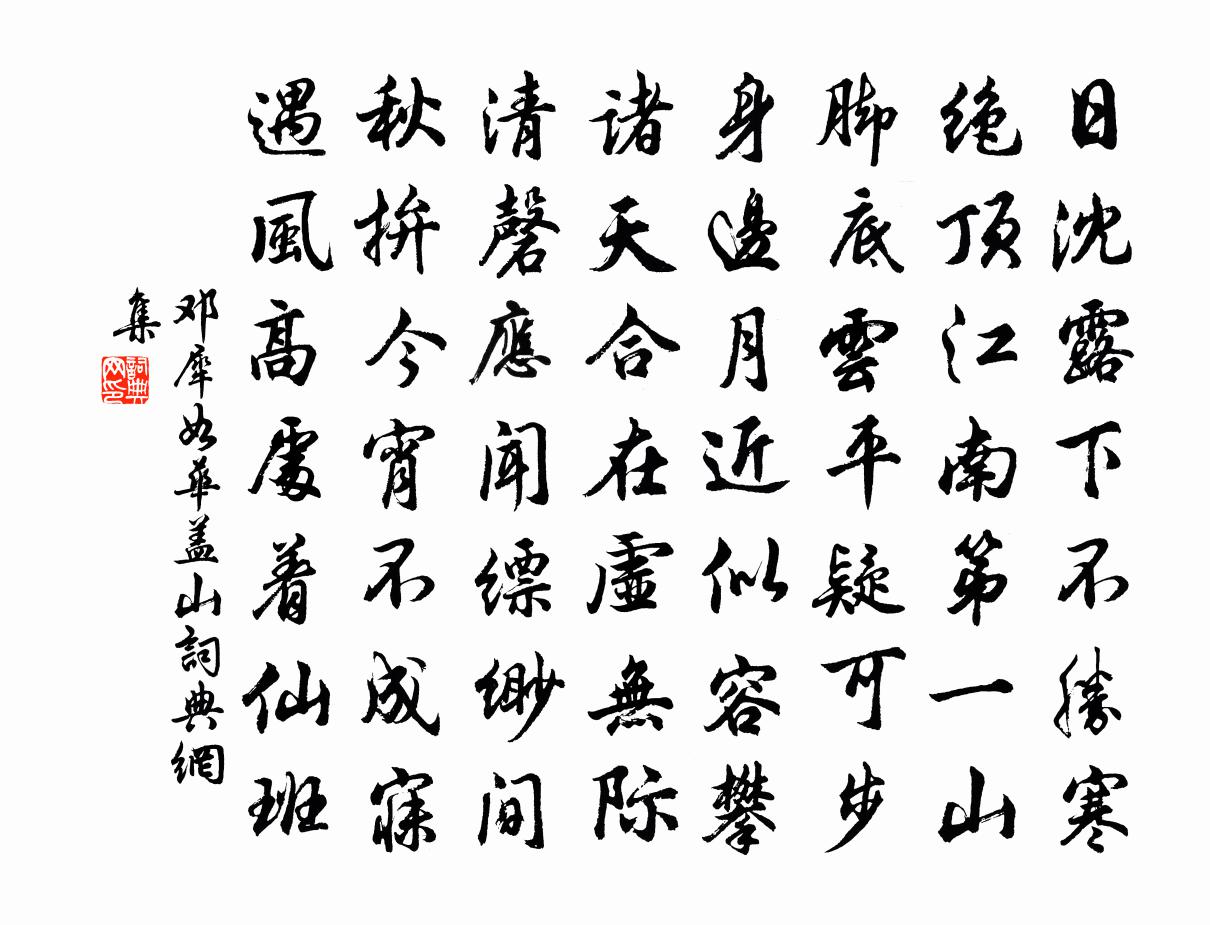 日沈露下不勝寒
绝顶江南第一山
脚底雲平疑可步
身邊月近似容攀
诸天合在虛無际
清磬應聞缥缈间
秋拚今宵不成寐
遇風高處着仙班
邓犀如华盖山詞典網
集
詞典网印